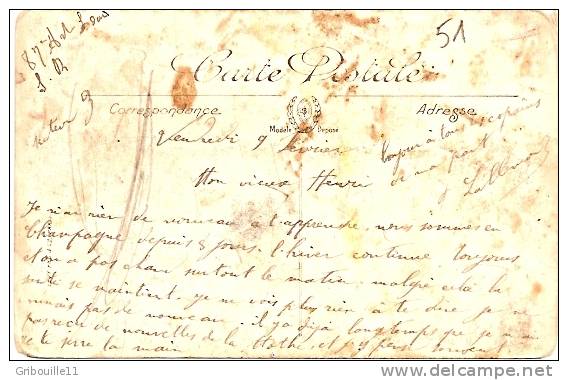 51
87
S. R
secteur 3
Carte Postale
Correspondance
Modèle Déposé
Adresse
Vendredi 9 Février
bonjour à tous les copains
de ma part
Mon vieux Henri
Je n'ai rien de nouveau à t'apprendre, nous sommes en
Champagne depuis 8 jours. l'hiver continue toujours
et on a pas chaud surtout le matin, malgré cela la
santé se maintient, je ne vois plus rien à te dire je ne
pas de nouveau. il y a déjà longtemps que je n'ai
pas reçu de nouvelles de la et j'y pense souvent
je te serre la main
© Gribouille11
delcampe.net